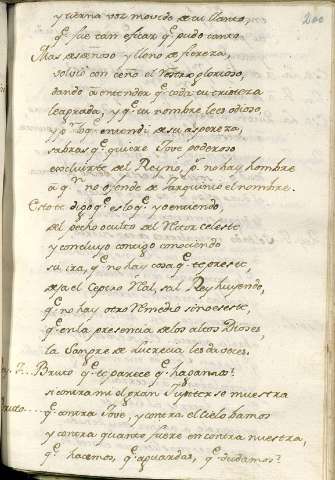 200
y tierna voz movido de su llanto,
q̃ fue tan eficaz q̃ pudo tanto
Mas desdeñoso y lleno de fiereza,
volvió con ceño el rostro glorioso,
dando a entender q̃ toda su
le agrada, y q̃ su nombre le es odioso,
y p. lo q̃ entendi de su aspereza,
sabras q̃ quiere Jove poderoso
excluirte del Reyno, p. no hay hombre
a q.n no ofende de Tarquinio el nombre.
Esto te digo q̃ es lo q̃ yo entiendo,
del pecho oculto del Rector celeste
y concluyo contigo conociendo
su ira, q̃ no hay cosa q̃ te preste,
dexa el Ceptro Real, sal Rey huyendo,
q̃ no hay otro remedio sino este,
q̃ en la presencia de los altos Dioses,
la Sangre de Lucrecia les da voces.
Bruto q̃ te parece q̃ hagamos?
si contra mi el gran Jupiter se muestra
Bruto.... q̃ contra Jove, y contra el Cielo vamos
y contra quanto fuere en contra nuestra,
q̃ hacemos, q̃ aguardas, q̃ dudamos?